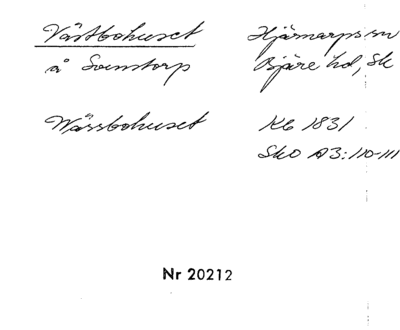 Västbohuset
Hjärnarps sn
å Svenstorp
Bjäre hd, Sk
Wässbohuset
Kb 1831
SkO A3:110-111
Nr 20212